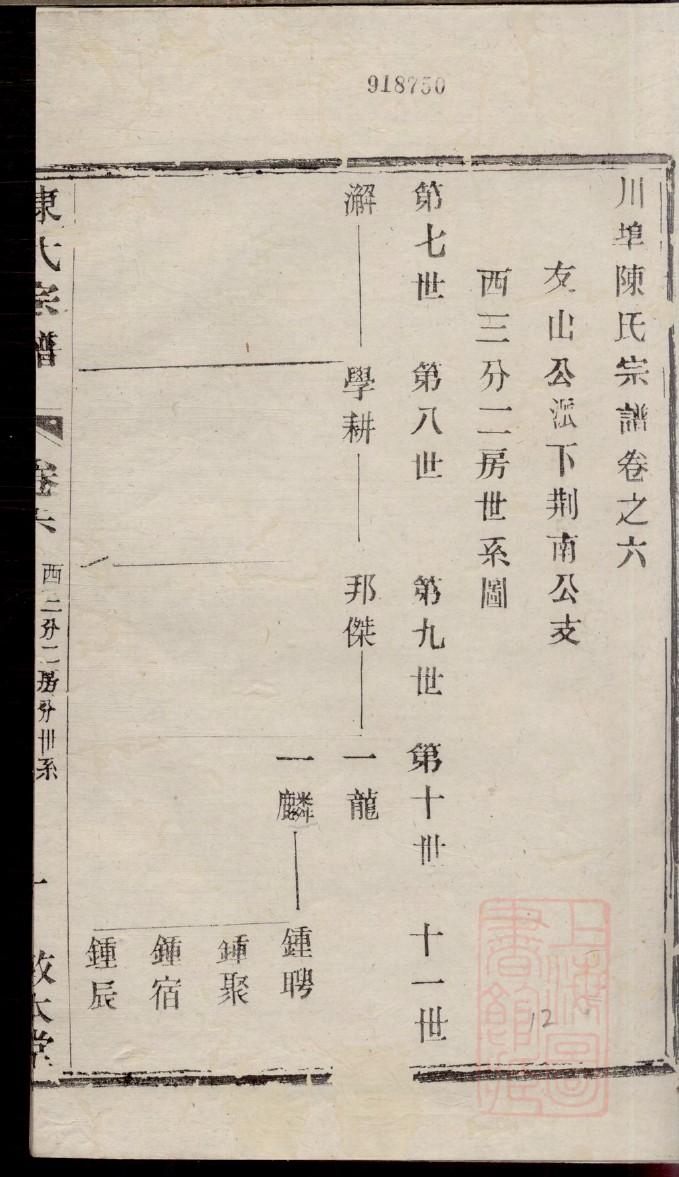 918750
川埠陳氏宗譜卷之六
友山公派下荆南公支
西三分二房世系圖
第七世 第八世 第九世 第十世 十一世
澥 學耕 邦傑 一龍
一麟 鍾聘
鍾聚
鍾宿
鍾辰
陳氏宗譜 卷六 西二分二房分世系 一 敦本堂
上海圖書館藏
12